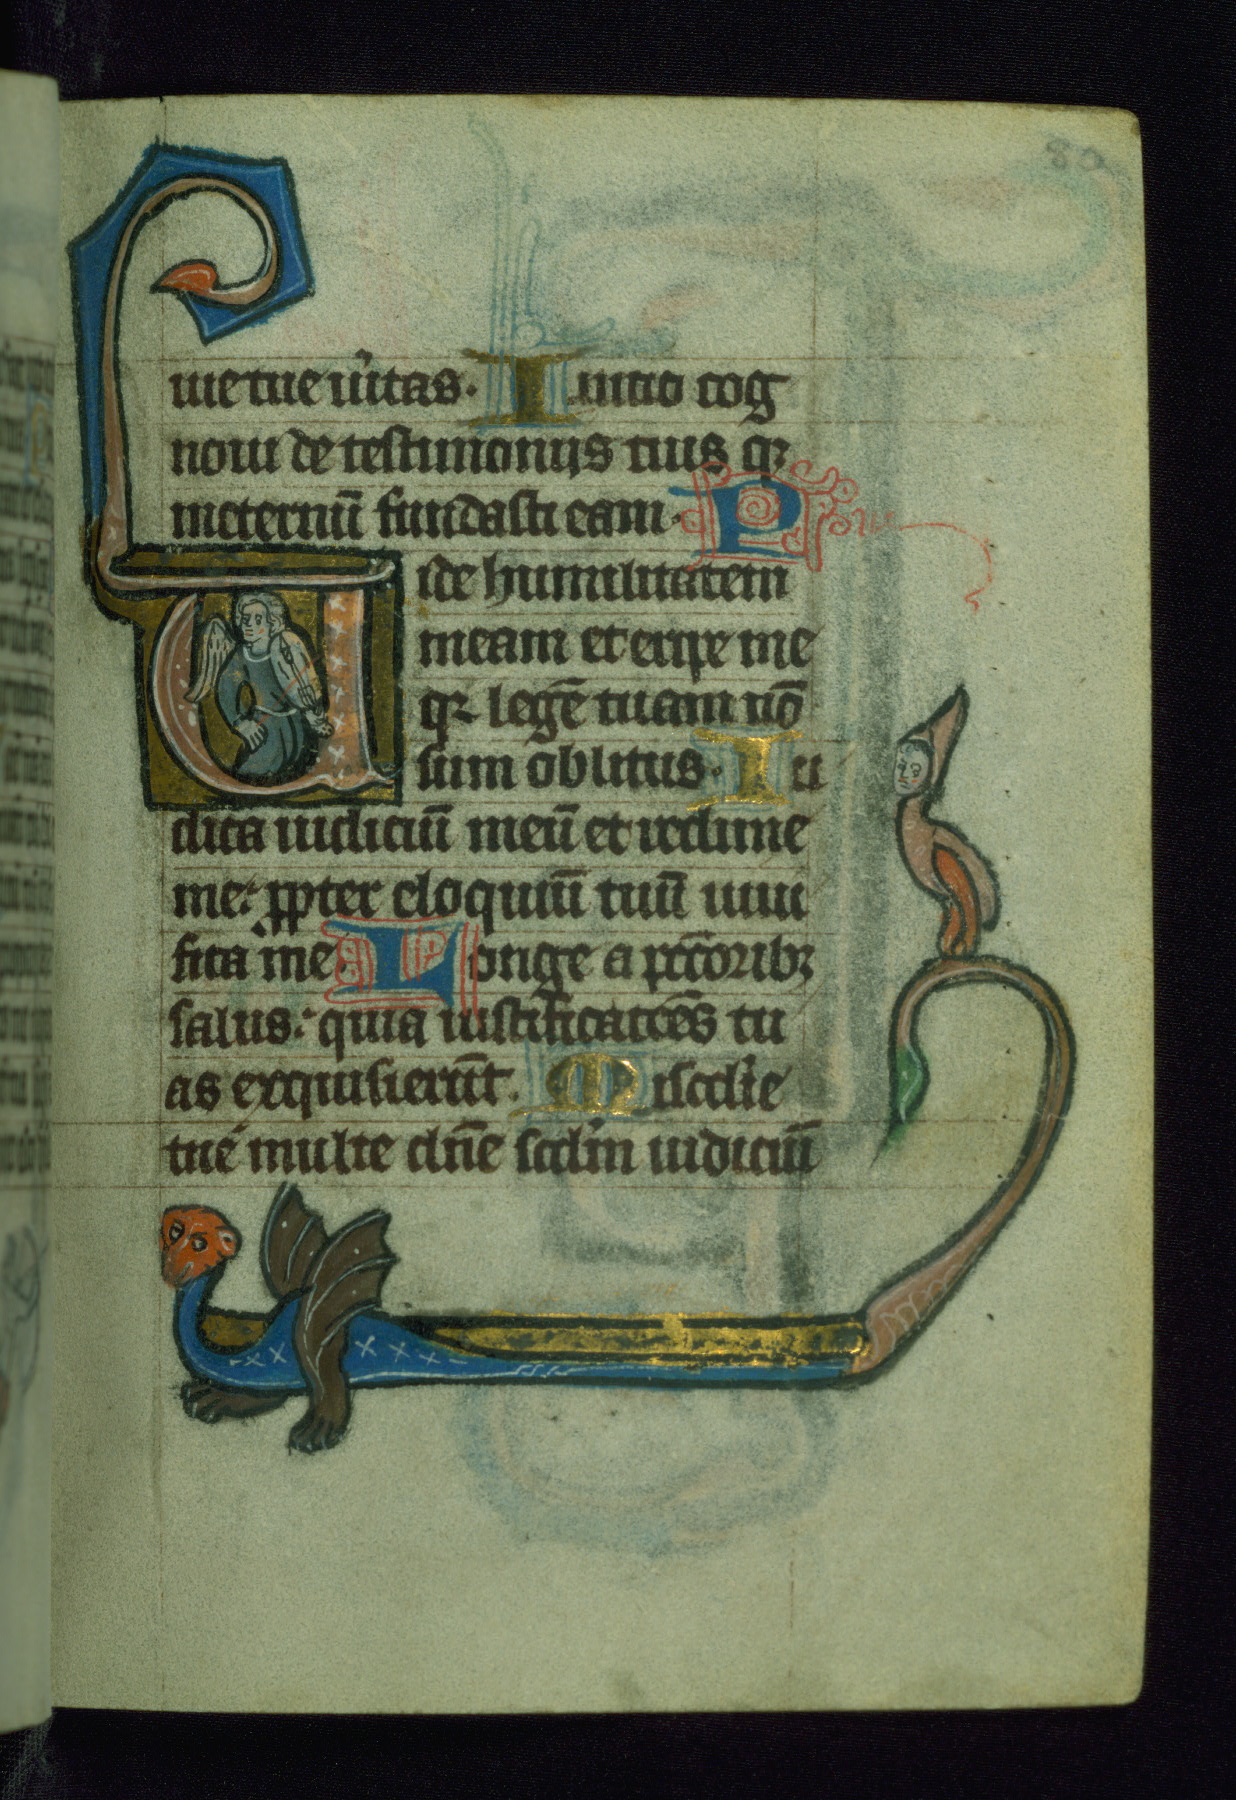 80
uie tue ũitas. Inicio cog
noui de testimoniis tuis qr
ineternũ fundasti eam. P
Vide humilitatem
meam et eripe me
qr legẽ tuam nõ
sum oblitus. Iu
dica iudiciũ meũ et redime
me: ꝓpter eloquiũ tuũ uiui
fica me. Longe a pc̃coribꝫ
salus: quia iustificac̃oẽs tu
as exquisierũt. Miscd̃ie
tue multe dñe scd̃m iudiciũ